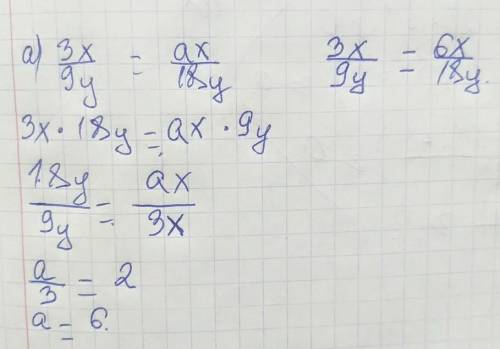 а) 3x/9y = ax/18y    3x/9y = 6x/18y.
3x · 18y = ax · 9y
18y/9y = ax/3x
a/3 = 2
a = 6.